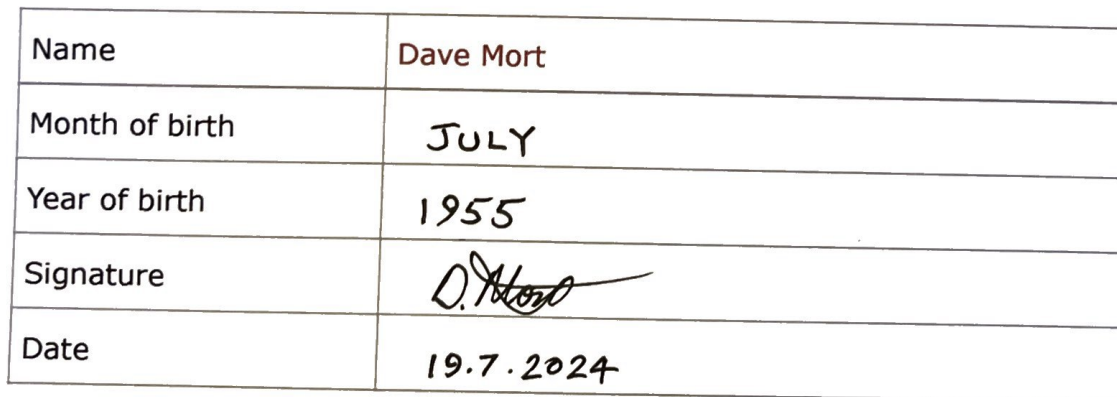 Name Dave Mort
Month of birth JULY
Year of birth 1955
Signature D. Mort
Date 19.7.2024